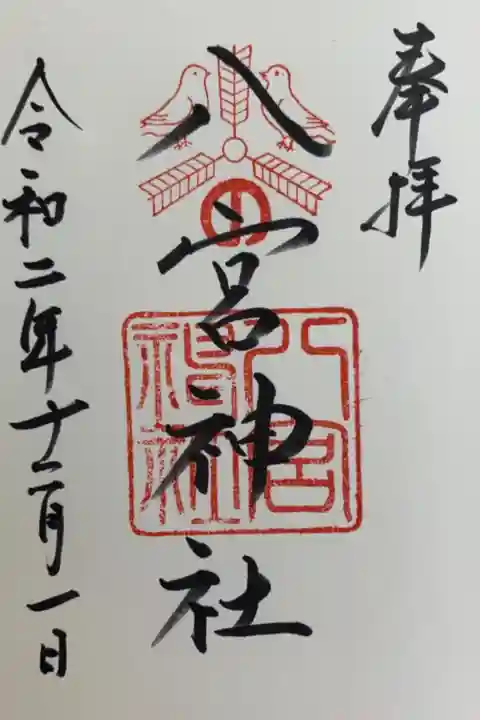 奉拝
八宮神社
令和二年十二月一日
八宮
神社